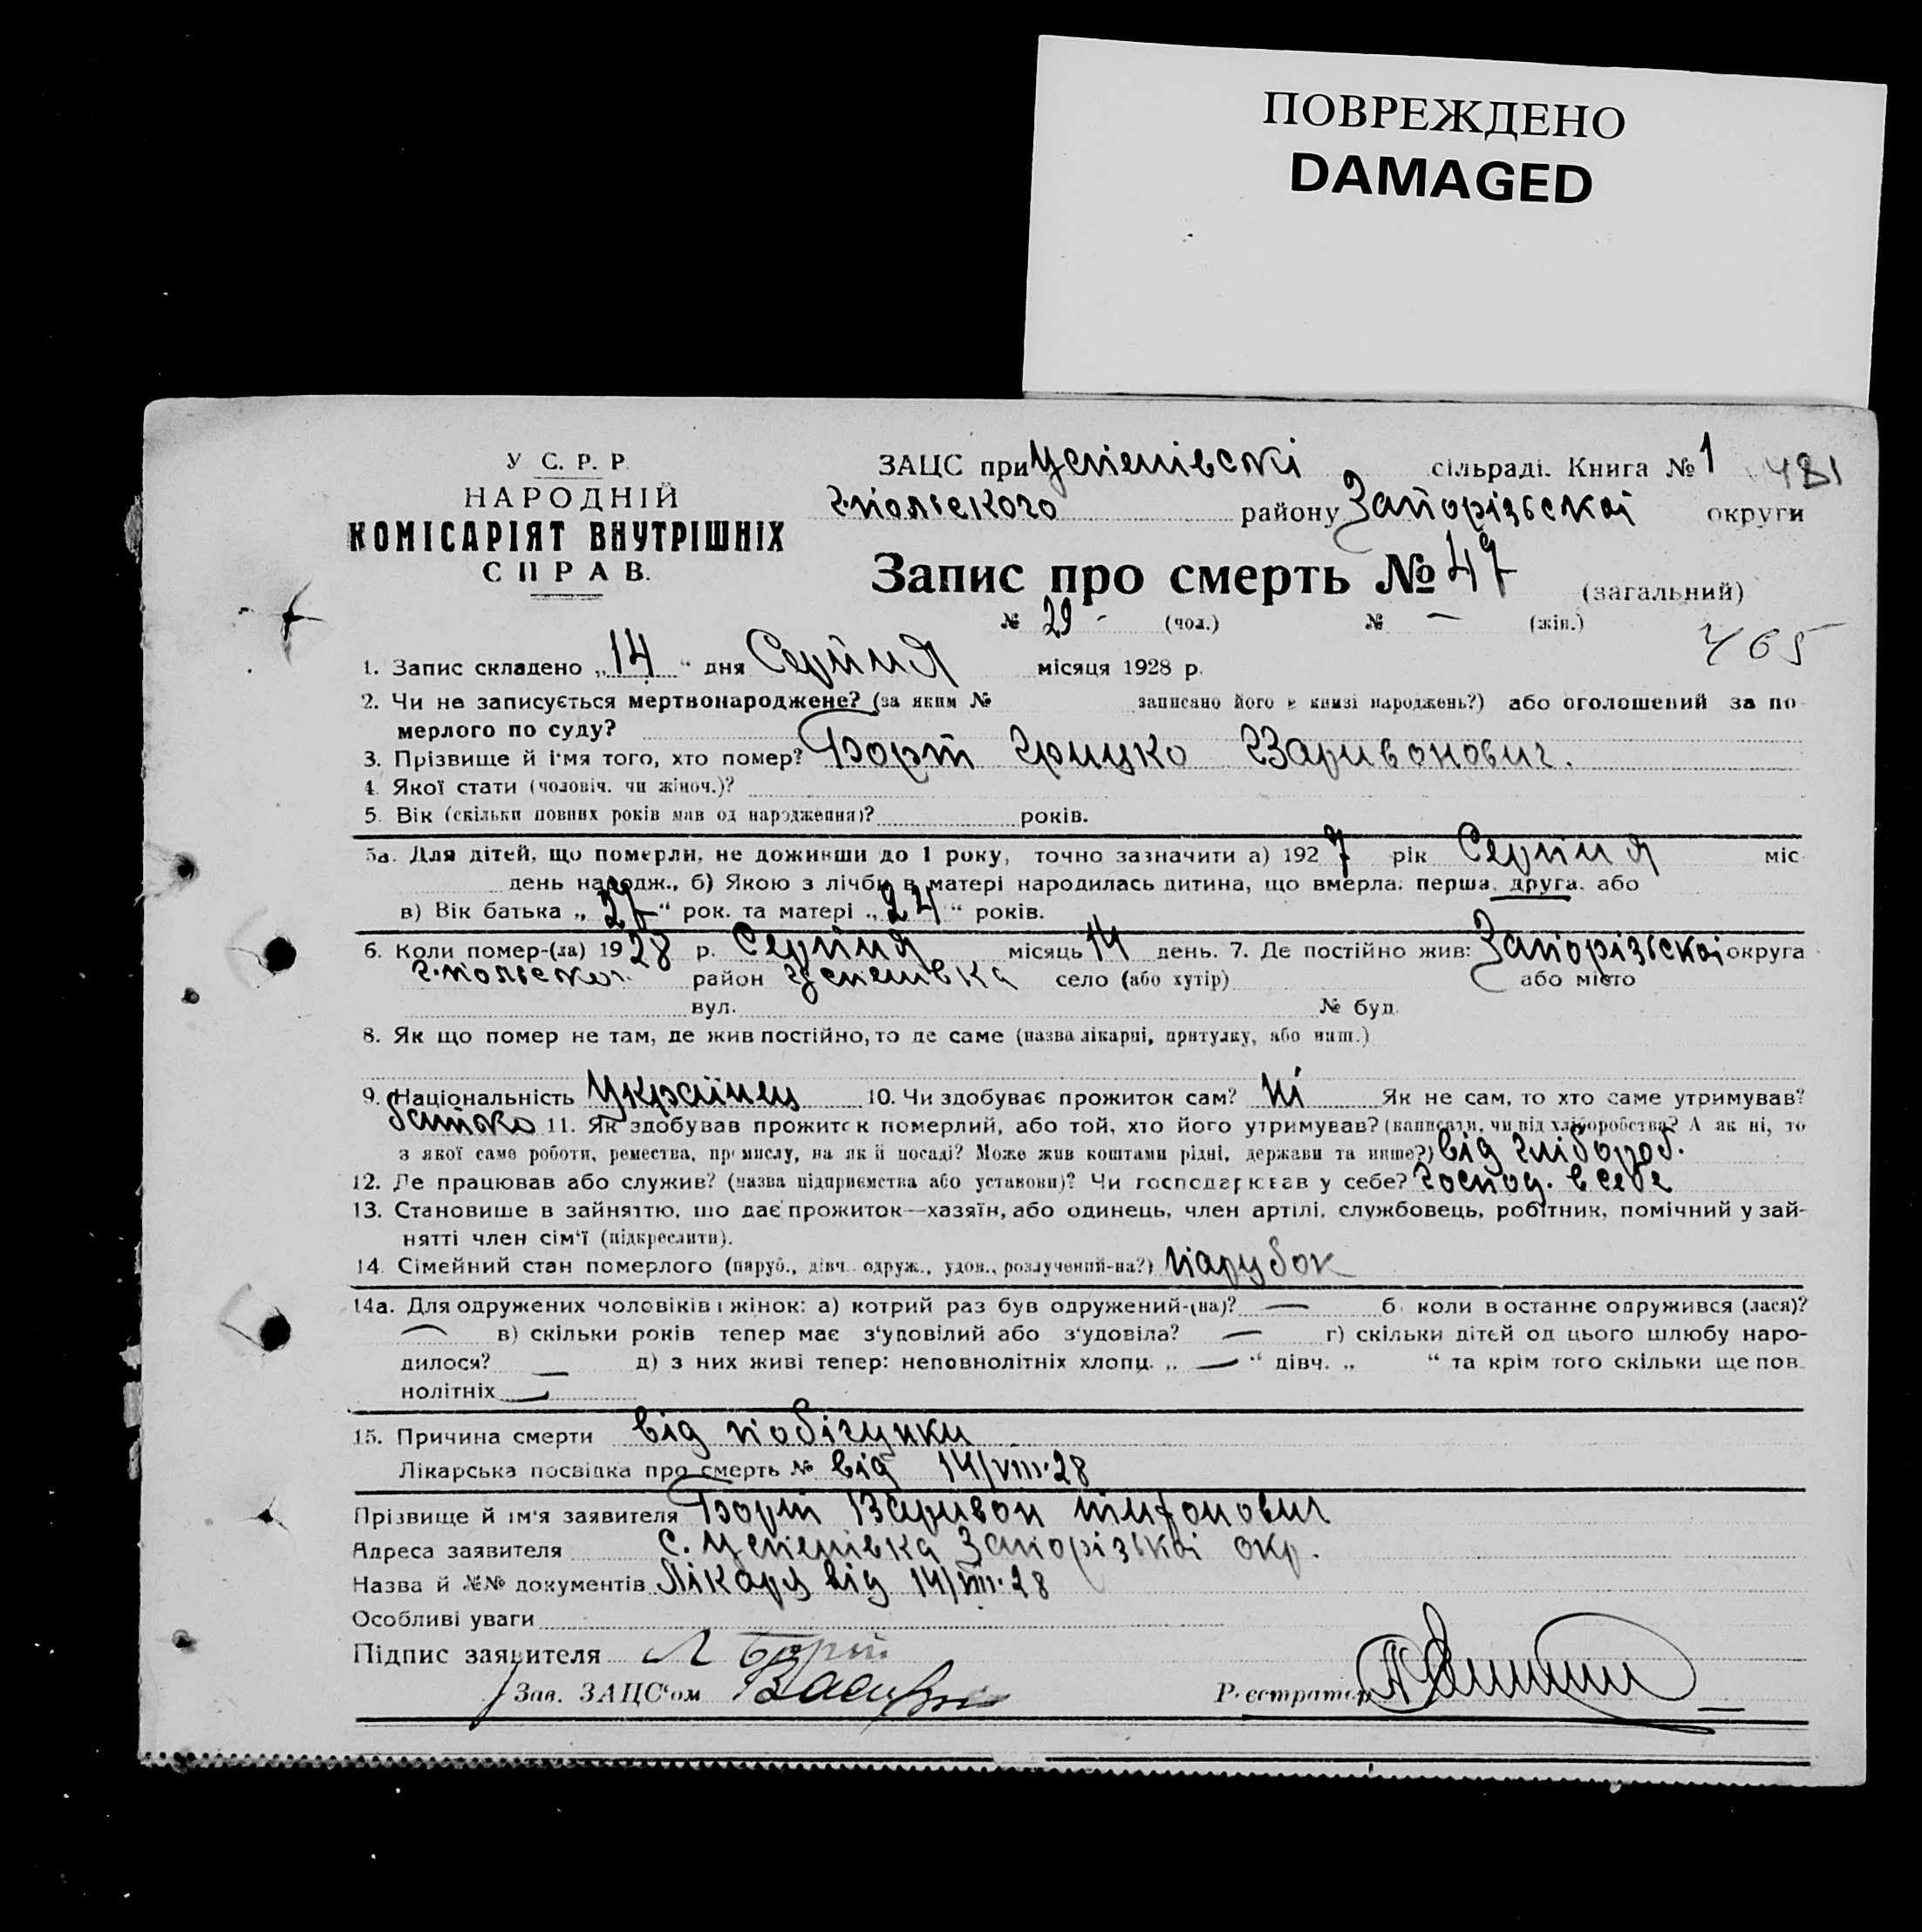 ПОВРЕЖДЕНО
DAMAGED
У С. Р. Р.
НАРОДНІЙ
КОМІСАРІЯТ ВНУТРІШНІХ
СПРАВ.
ЗАЦС при Успенівскі сільраді. Книга № 1 481
г-польского району Запорізьскоі округи
Запис про смерть № 47 (загальний)
№ 29 - (чол.) № — (жін.)
465
1. Запис складено „14“ дня Серпня місяця 1928 р.
2. Чи не записується мертвонароджене? (за яким № записано його в книзі народжень?) або оголошений за по-
мерлого по суду?
3. Прізвище й ім‘я того, хто помер? Борт Грицко Варивонович.
4. Якої стати (чоловіч. чи жіноч.)?
5. Вік (скільки повних років мав од народження)? років.
5а. Для дітей, що померли, не доживши до 1 року, точно зазначити а) 1927 рік Серпня міс
день народж., б) Якою з лічби в матері народилась дитина, що вмерла: перша, друга, або
в) Вік батька „27“ рок. та матері „24“ років.
6. Коли помер-(ла) 1928 р. Серпня місяць 14 день. 7. Де постійно жив: Запорізьскоі округа
г-польског. район Успенівка село (або хутір) або місто
вул. № буд.
8. Як що помер не там, де жив постійно, то де саме (назва лікарні, притулку, або инш.)
9. Національність Українец 10. Чи здобуває прожиток сам? ні Як не сам, то хто саме утримував?
батько 11. Як здобував прожиток померлий, або той, хто його утримував? (написати, чи від хліборобства? А як ні, то
з якої саме роботи, ремества, промислу, на якій посаді? Може жив коштами рідні, держави та инше?) від хлібороб.
12. Де працював або служив? (назва підприємства або установи)? Чи господарював у себе? господ. в себе
13. Становище в зайняттю, що дає прожиток—хазяїн, або одинець, член артілі, службовець, робітник, помічний у зай-
нятті член сім‘ї (підкреслити).
14. Сімейний стан померлого (паруб., дівч. одруж., удов., розлучений-на?) парубок
14а. Для одружених чоловіків і жінок: а) котрий раз був одружений-(на)? — б) коли в останнє одружився (лася)?
— в) скільки років тепер має з‘уповілий або з‘удовіла? — г) скільки дітей од цього шлюбу наро-
дилося? — д) з них живі тепер: неповнолітніх хлопц. „ — “ дівч. „ “ та крім того скільки ще пов-
нолітніх —
15. Причина смерти від побігунки
Лікарська посвідка про смерть № від 14/VIII-28
Прізвище й ім‘я заявителя Борт Варивон Тифонович
Адреса заявителя с. Успенівка Запорізькоі окр.
Назва й №№ документів Лікаря від 14/VIII-28
Особливі уваги
Підпис заявителя Борт
Зав. ЗАЦС‘ом
Реєстратор